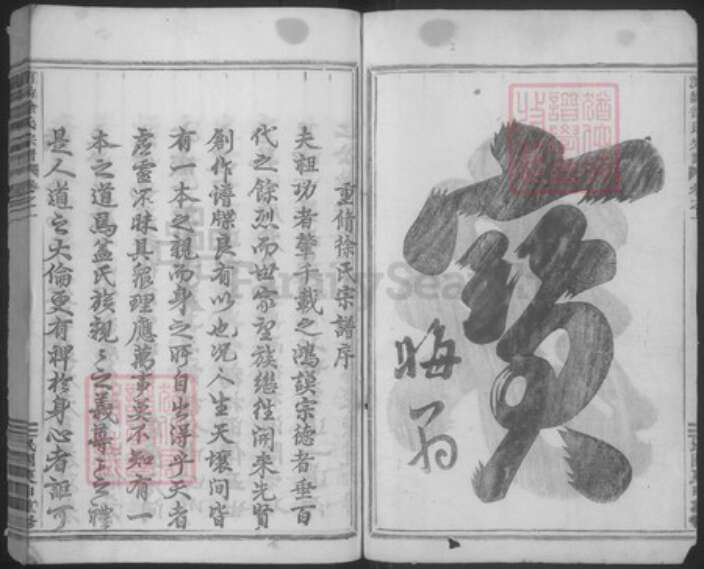 寶
晦翁
重脩徐氏宗譜序
夫祖功者肇千載之鴻謨宗德者垂百
代之餘烈而世家望族繼往開來先賢
創作譜牒良有以也况人生天壤间皆
有一本之親而身之所自出得乎天者
虚灵不昧具眾理應萬事莫不知有一
本之道焉盖氏族親〻之義尊上之禮
是人道之大倫更有裨於身心者詎可
FamilySearch